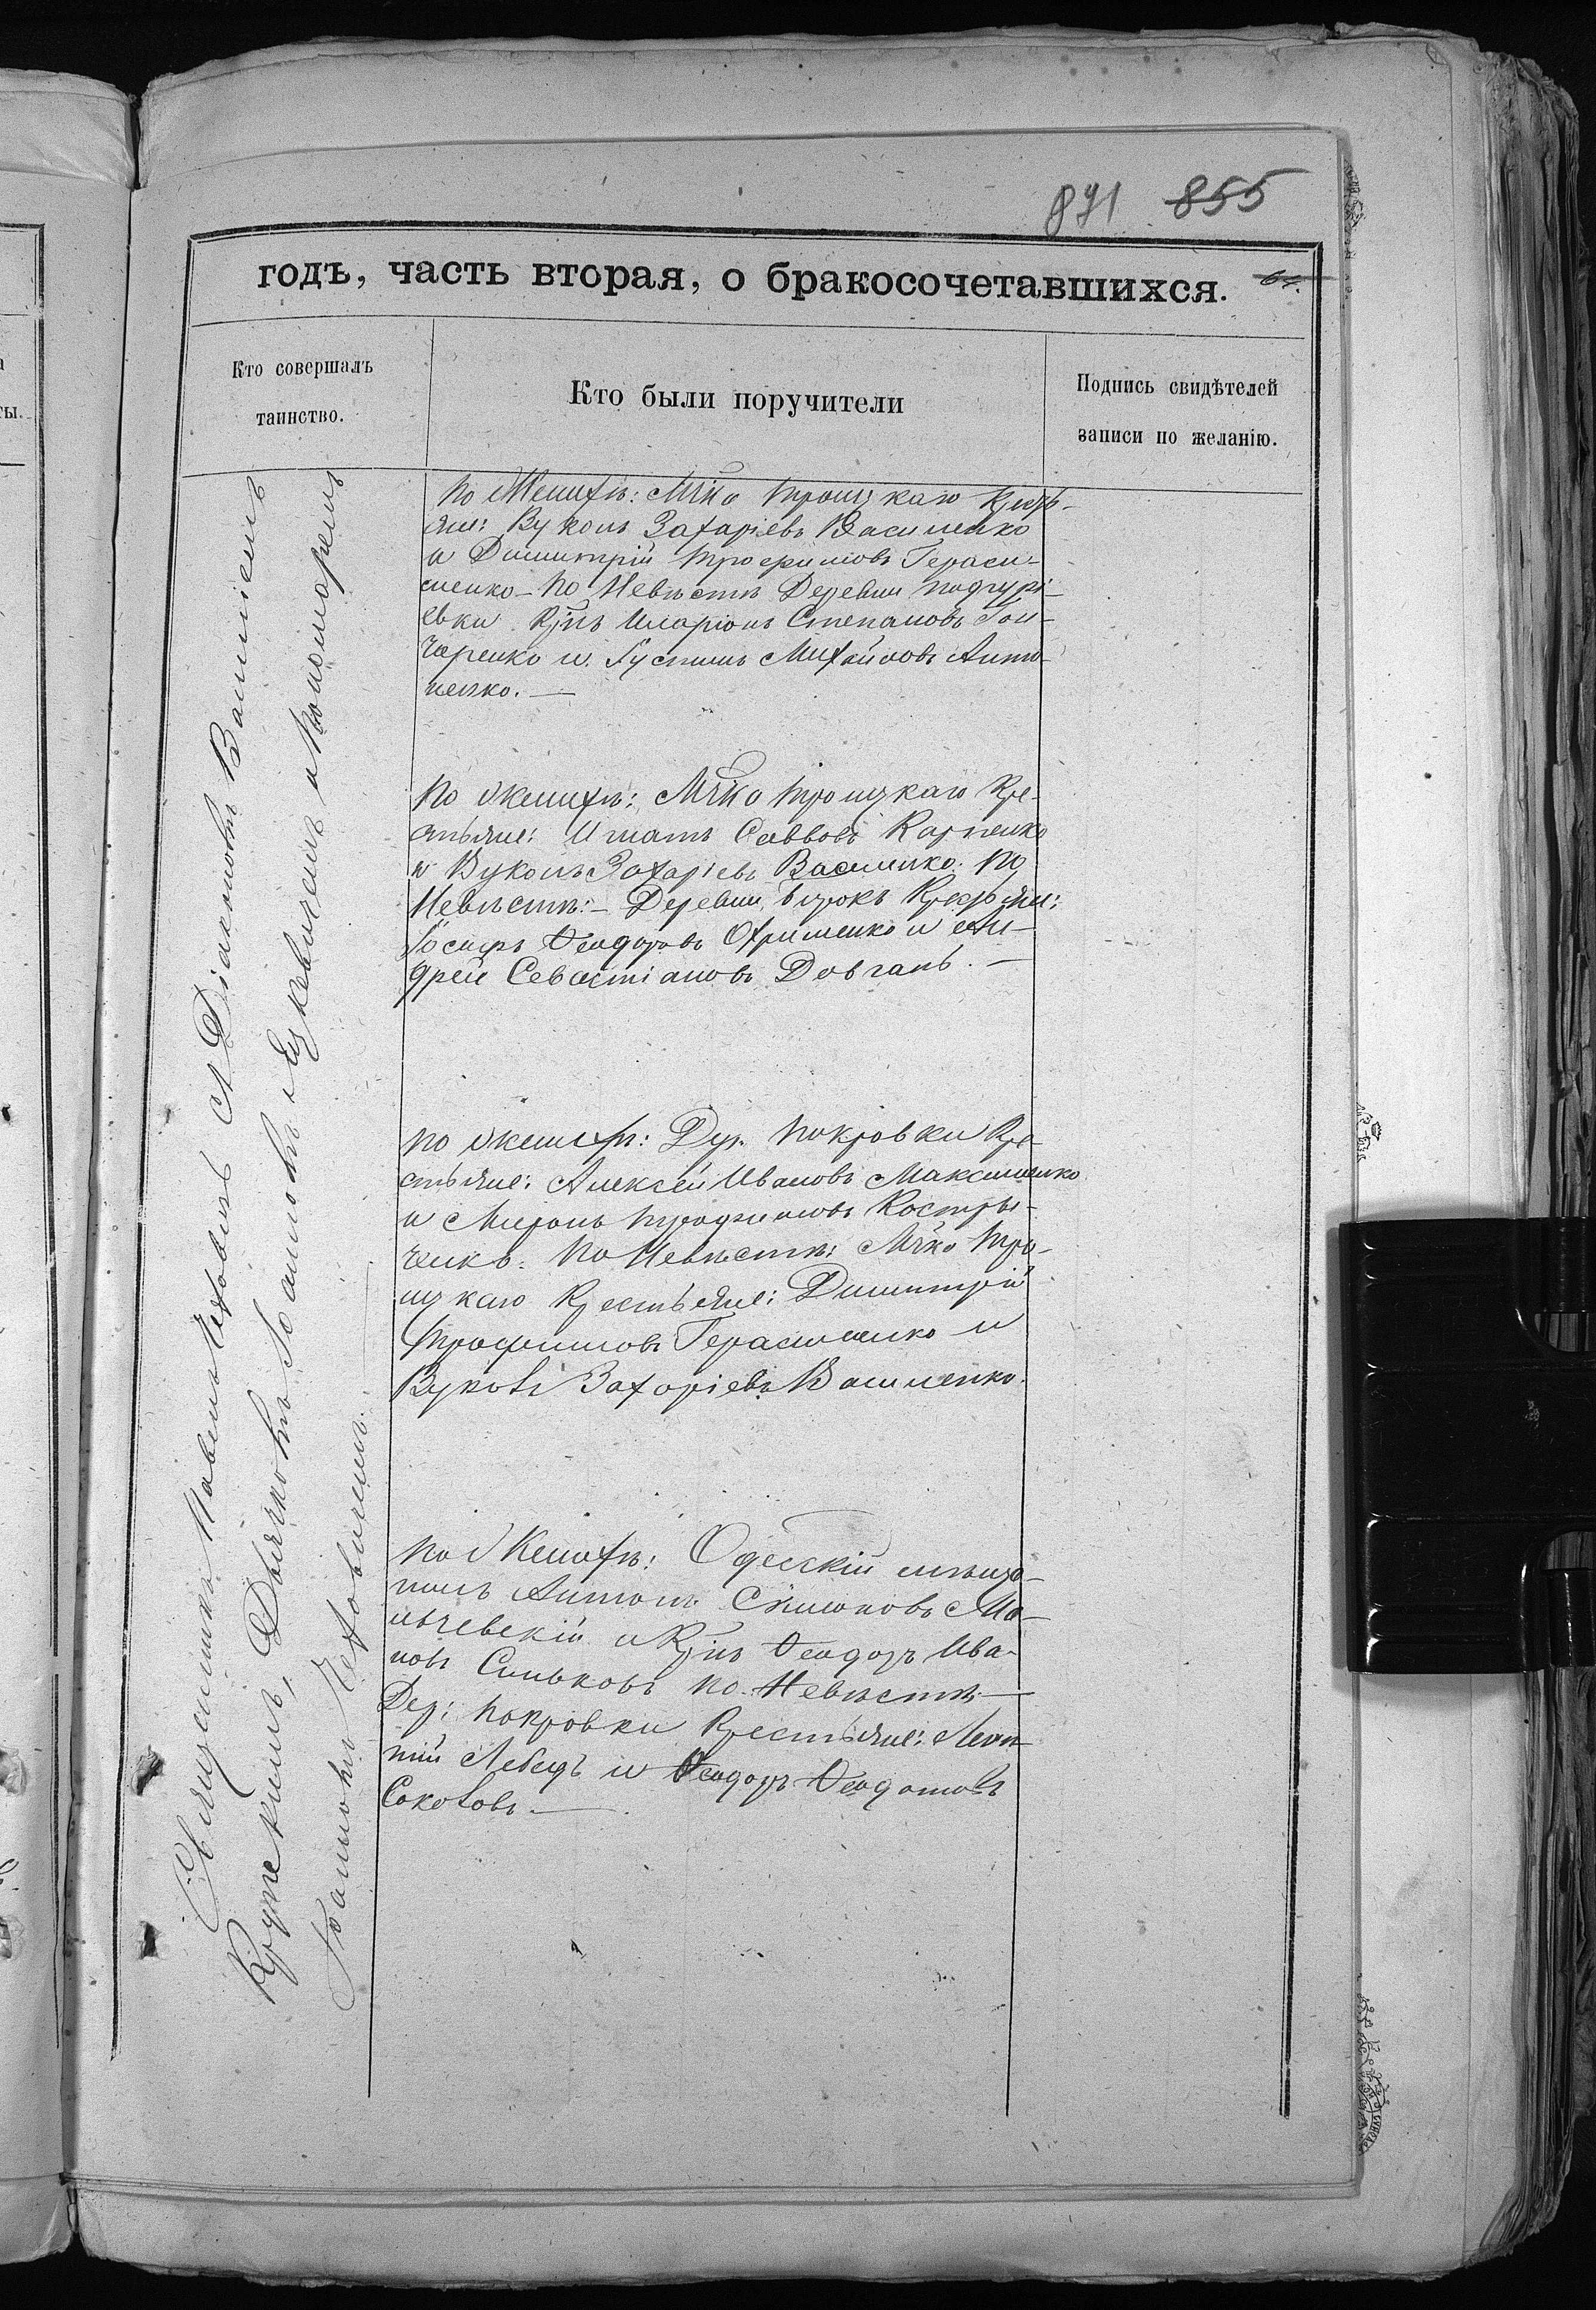 891 855
годъ, часть вторая, о бракосочетавшихся.
Кто совершалъ
таинство.
Кто были поручители
Подпись свидѣтелей
записи по желанію.
Священникъ Павелъ Чеховичъ съ Діакономъ Василіемъ
Крутскимъ, Дьячкомъ Іоанномъ и Пономаремъ
Іоанномъ Чеховичемъ.
По Женихѣ: Мѣчко Троицкаго Крестъ-
яне: Вуколъ Захаріевъ Василенко
и Димитрій Трофимовъ Гераси-
менко – По Невѣстѣ Деревни
евки Кр̃нъ Иларіонъ Степановъ Гон-
чаренко и Іустинъ Михайловъ Анто-
ненко. —
По женихѣ: Мѣчко Троицкаго Кре-
стьяне: Игнатъ Саввовъ Карпенко
и Вуколъ Захаріевъ Василенко. По
Невѣстѣ: – Деревни Крестьяне:
Іосифъ Феодоровъ Охрименко и Ан-
дрей Севастіановъ Довгань. —
По женихѣ: Дер. Покровки Кре-
стьяне: Алексѣй Ивановъ Максименко
и Миронъ Трофимовъ Костры-
ченко. По Невѣстѣ: Мѣчко Тро-
ицкаго Крестьяне: Димитрій
Трофимовъ Герасименко и
Вуколъ Захаріевъ Василенко.
По Женихѣ: Одесскій мѣща-
нинъ Антонъ Симоновъ Ма-
льчевскій и Кр̃нъ Феодоръ Ива-
новъ Синьковъ по Невѣстѣ —
Дер: Покровки Крестьяне: Леон-
тій Лебедь и Феодоръ Феодотовъ
Соколовъ —.